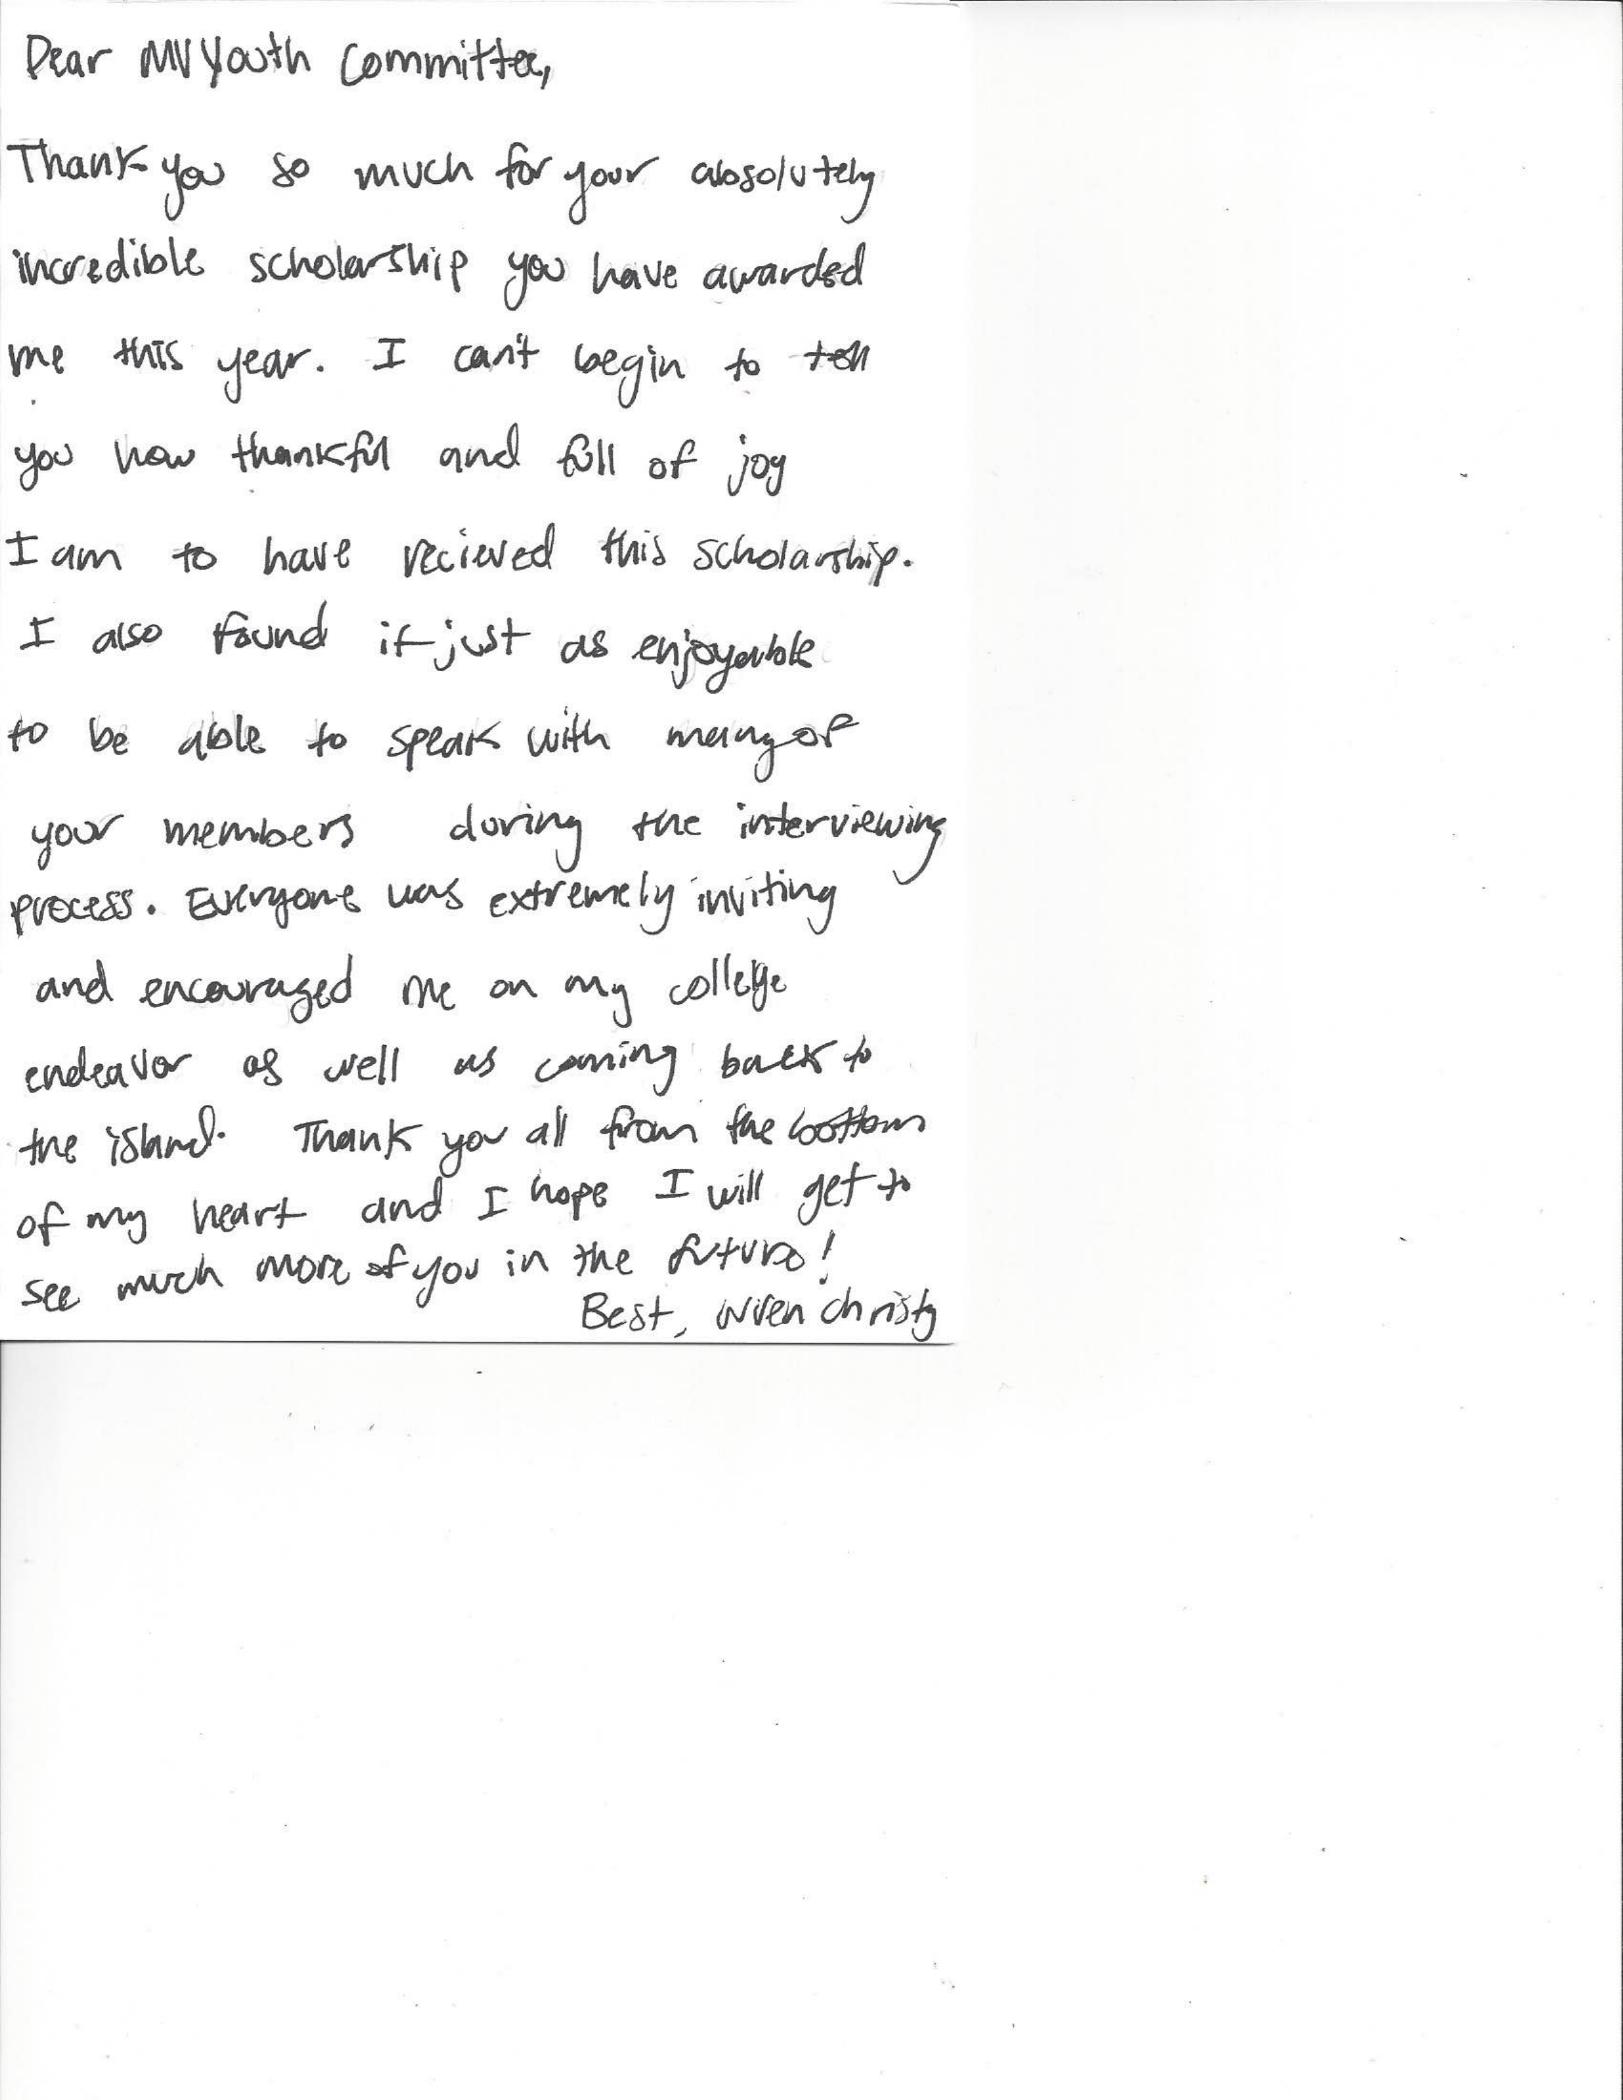 Dear MVYouth Committee,
Thank you so much for your absolutely
incredible scholarship you have awarded
me this year. I can't begin to tell
you how thankful and full of joy
I am to have recieved this scholarship.
I also found it just as enjoyable
to be able to speak with many of
your members during the interviewing
process. Everyone was extremely inviting
and encouraged me on my college
endeavor as well as coming back to
the island. Thank you all from the bottom
of my heart and I hope I will get to
see much more of you in the future!
Best, Wren Christy